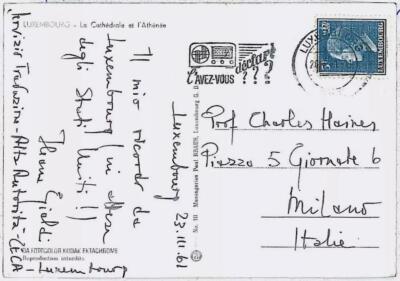 LUXEMBOURG - La Cathédrale et l'Athénée
Il mio ricordo da
Luxembourg (in attesa
degli Stati Uniti!)
Servizio Traduzione - Alta Autorità - CECA
- Luxembourg
Luxembourg 23.III.61
DA FOTOCOLOR KODAK EKTACHROME
Reproduction interdite
No. 111 Messageries Paul KRAUS, Luxembourg G. D.
L'AVEZ-VOUS
déclaré
???
LUXEMBOURG
Prof Charles Haines
Piazza 5 Giornate 6
Milano
Italie